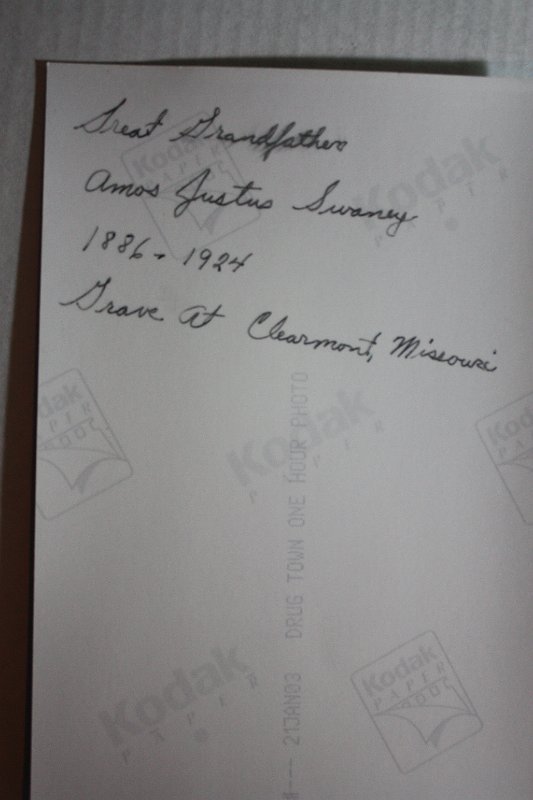 Great Grandfather
Amos Justus Swaney
1886 - 1924
Grave At Clearmont, Missouri
Kodak
PAPER
Kodak
PAPER
Kodak
PAPER
Kodak
PAPER
Kodak
PAPER
Kodak
PAPER
21JAN03 DRUG TOWN ONE HOUR PHOTO